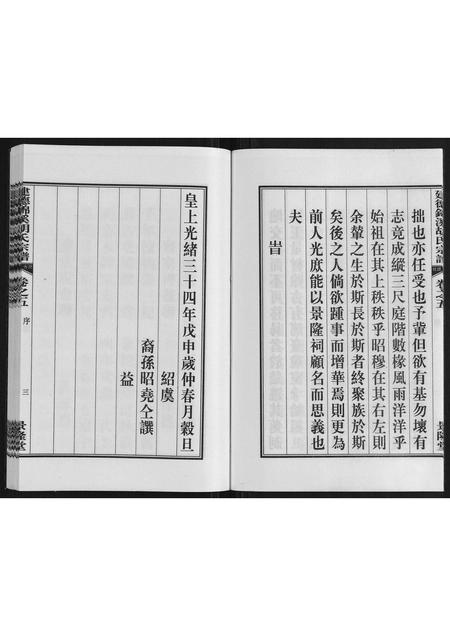 建德錦溪胡氏宗譜
卷之五
景隆堂
拙也亦任受也予輩但欲有基勿壞有
志竟成縱三尺庭階數椽風雨洋洋乎
始祖在其上秩秩乎昭穆在其右左則
余輩之生於斯長於斯者終聚族於斯
矣後之人倘欲踵事而增華焉則更為
前人光庶能以景隆祠顧名而思義也
夫
旹
皇上光緒三十四年戊申歲仲春月穀旦
紹虞
裔孫昭堯仝譔
益
建德錦溪胡氏宗譜
卷之五
序
三
景隆堂